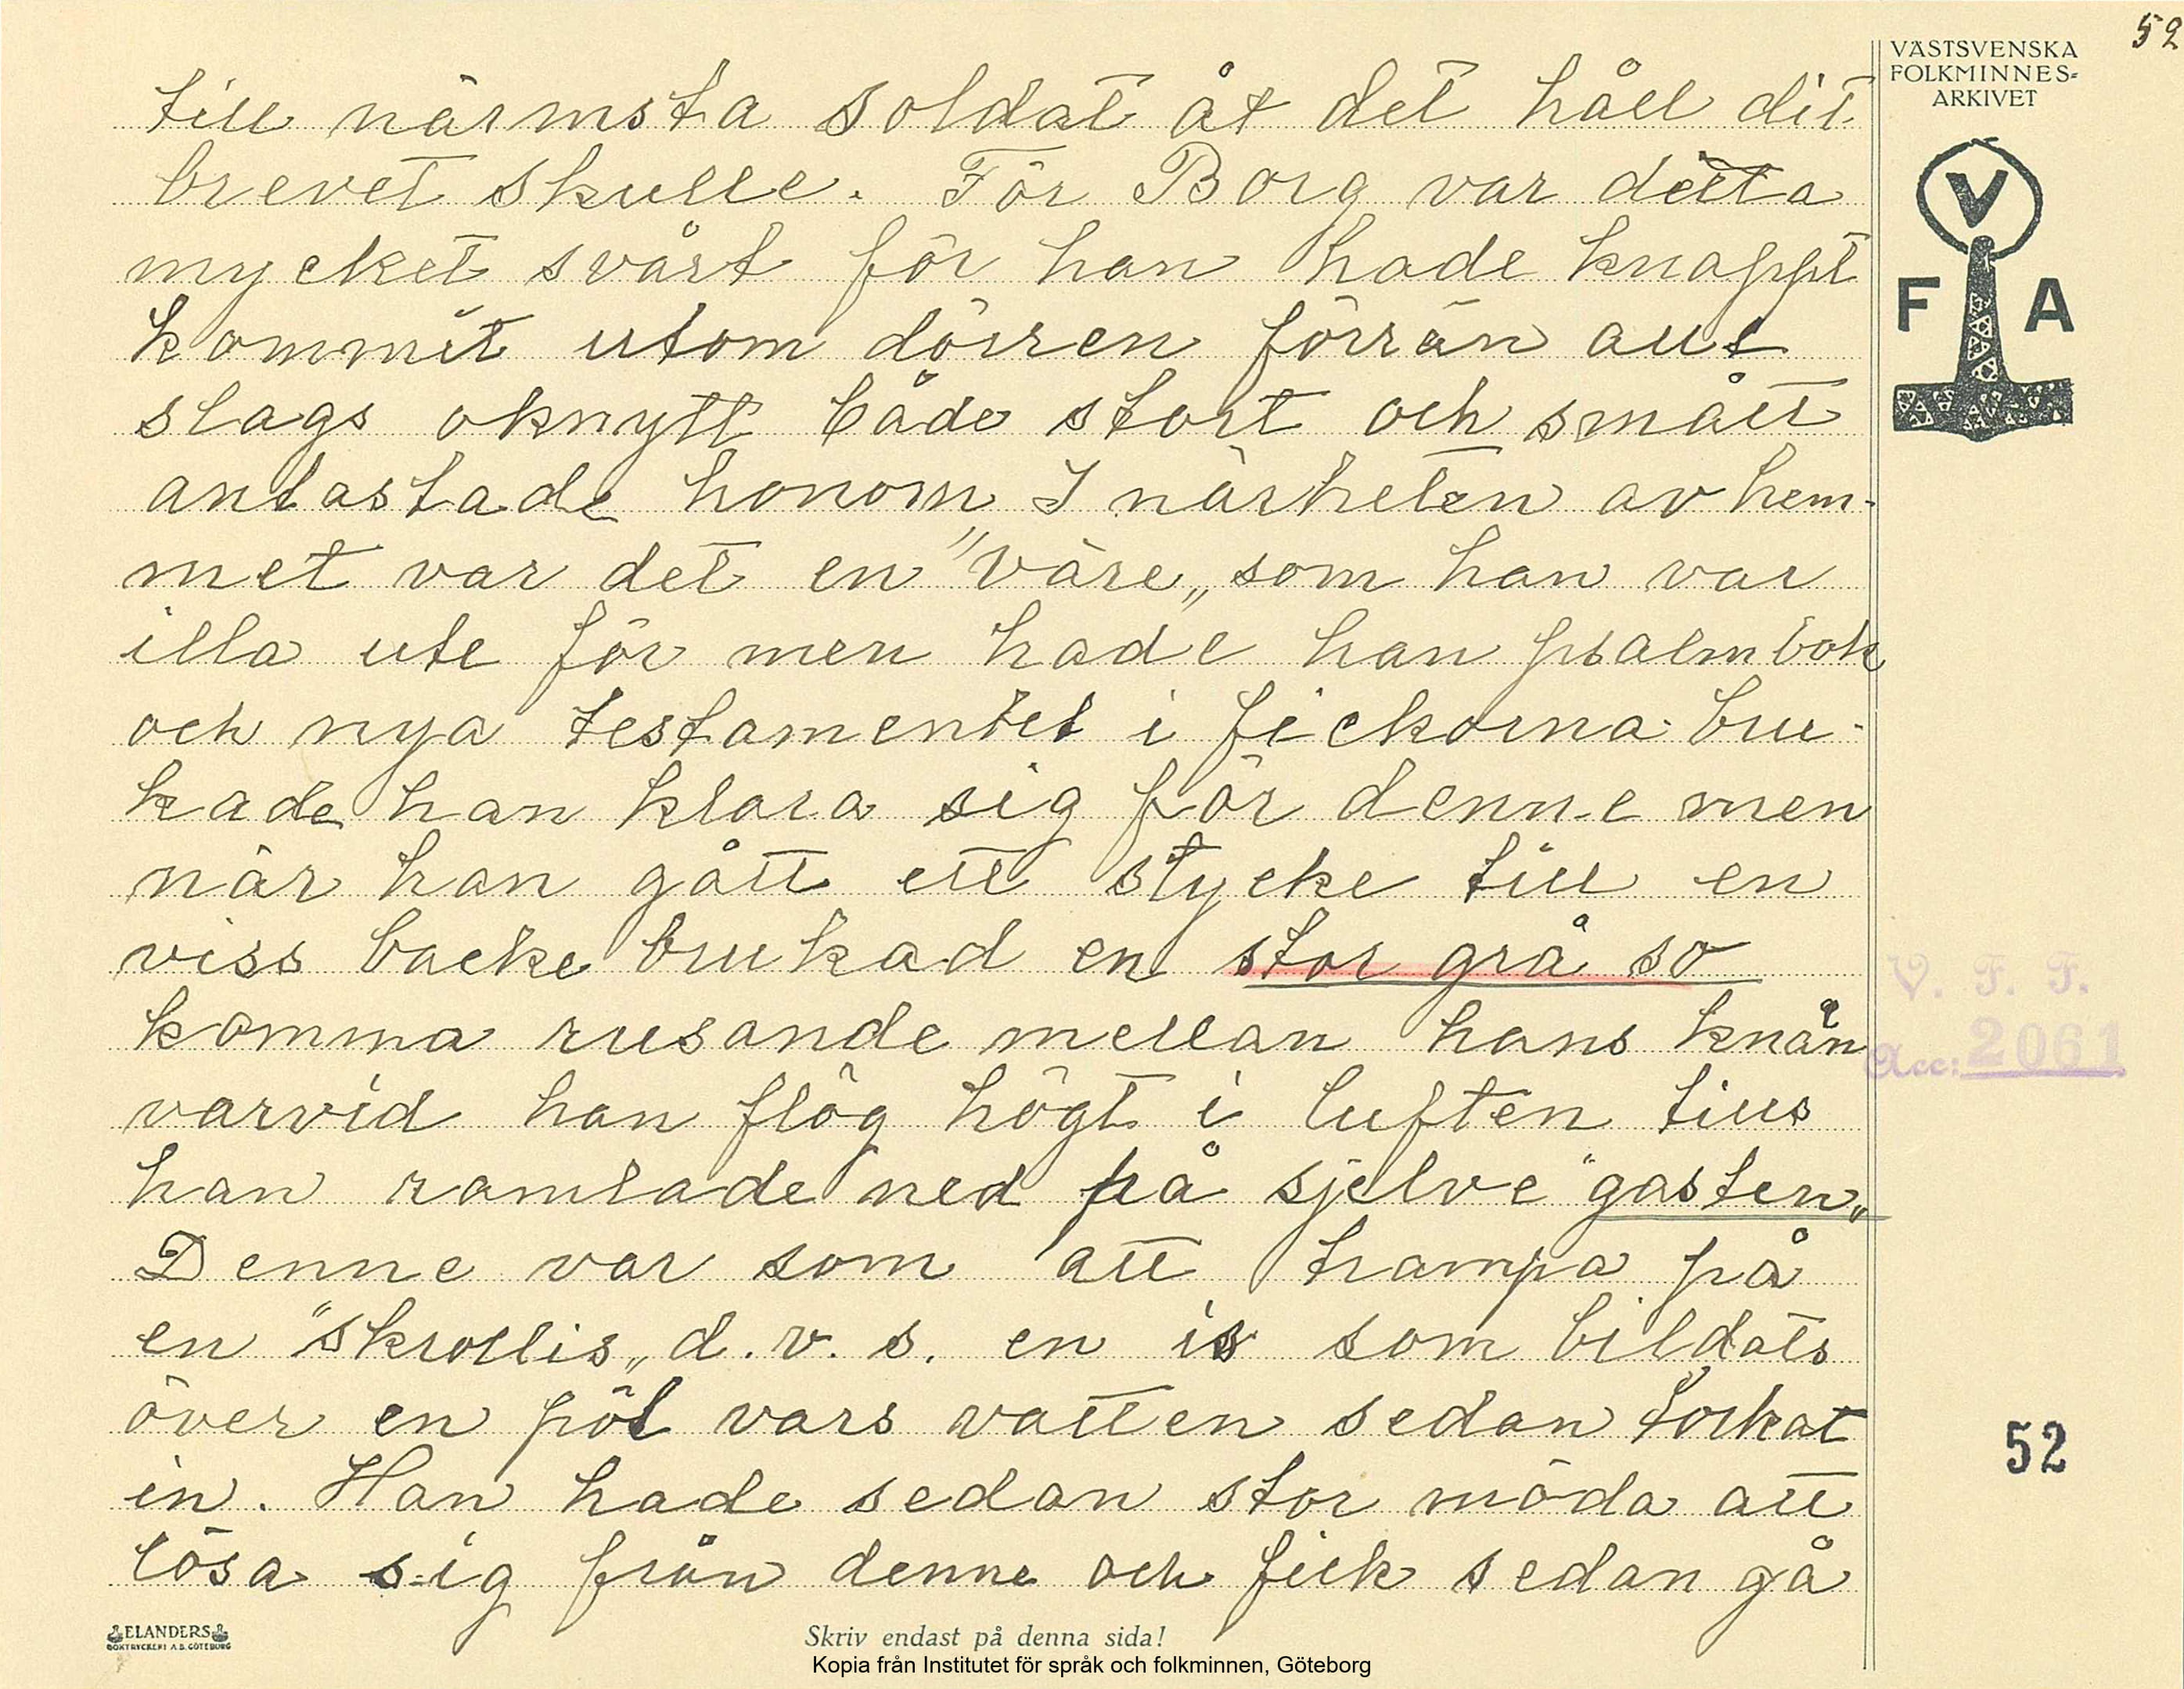 52
VÄSTSVENSKA
FOLKMINNES-
ARKIVET
V
F A
till närmsta soldat åt det håll dit
brevet skulle. För Borg var detta
mycket svårt för han hade knappt
kommit utom dörren förrän allt
slags oknytt både stort och smått
antastade honom I närheten av hem-
met var det en "våre„ som han var
illa ute för men hade han psalmbok
och nya testamentet i fickorna bru-
kade han klara sig för denne men
när han gått ett stycke till en
viss backe brukad en stor grå so
komma rusande mellan hans knän
varvid han flög högt i luften tills
han ramlade ned på sjelve "gasten„
Denne var som att trampa på
en "skrollis„ d.v.s. en is som bildats
över en pöl vars vatten sedan torkat
in. Han hade sedan stor möda att
lösa sig från denne och fick sedan gå
V. F. F.
Acc: 2061
52
ELANDERS
BOKTRYCKERI A.B. GÖTEBORG
Skriv endast på denna sida!
Kopia från Institutet för språk och folkminnen, Göteborg